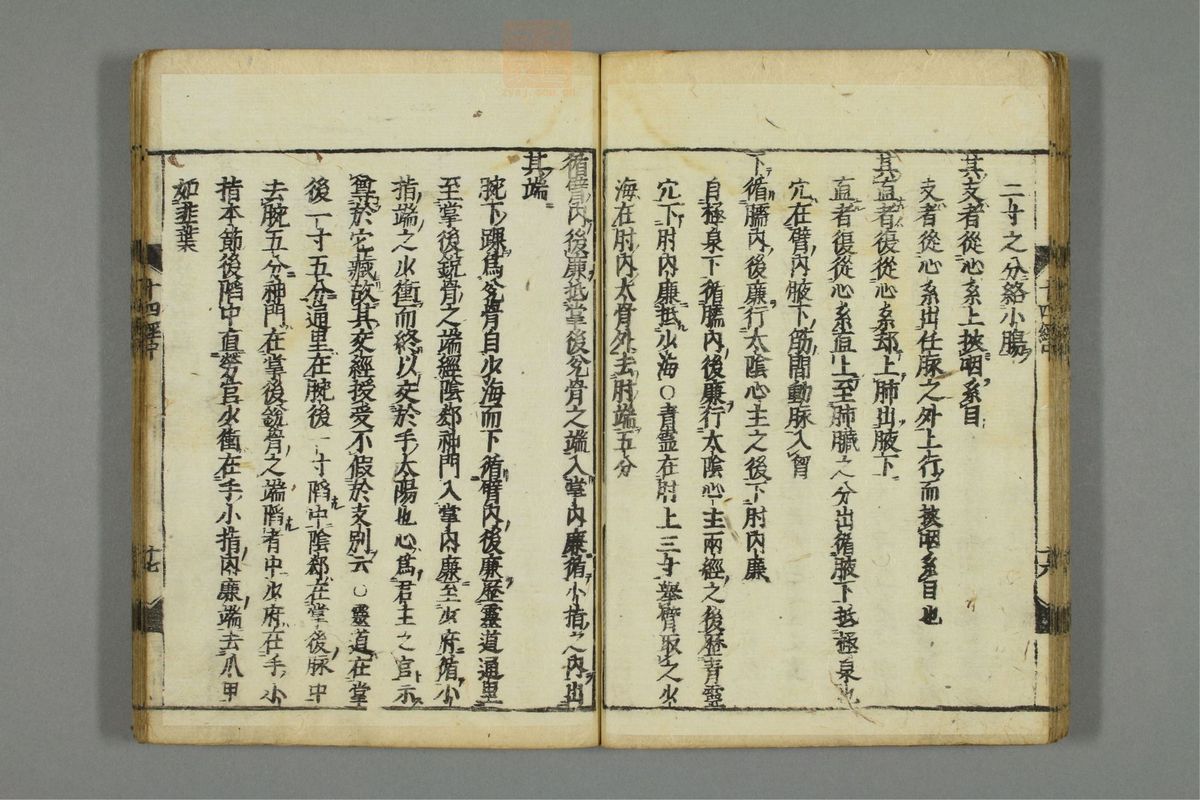 二寸之分絡小腸
其支者從心系上挾咽系目
支者從心系出任脉之外上行而挾咽系目也
其直者復從心系却上肺出腋下
直者復從心系直上至肺臟之分出循腋下抵極泉也
穴在臂内腋下筋間動脉入胷
下循臑内後廉行太陰心主之後下肘内廉
自極泉下循臑内後廉行太陰心主兩經之後歷青靈
穴下肘内廉抵少海○青靈在肘上三寸舉臂取之少
海在肘内大骨外去肘端五分
十四經中
十六
循臂内後廉抵掌後兊骨之端入掌内廉循小指之内出
其端
腕下踝爲兊骨自少海而下循臂内後廉歷靈道通里
至掌後銳骨之端經陰郄神門入掌内廉至少府循小
指端之少衝而終以交於手太陽也心爲君主之官示
尊於它藏故其交經授受不假於支別云○靈道在掌
後一寸五分通里在腕後一寸陷中陰郄在掌後脉中
去腕五分神門在掌後銳骨之端陷者中少府在手小
指本節後陷中直勞宮少衝在手小指内廉端去爪甲
如韭葉
十四經中
十七